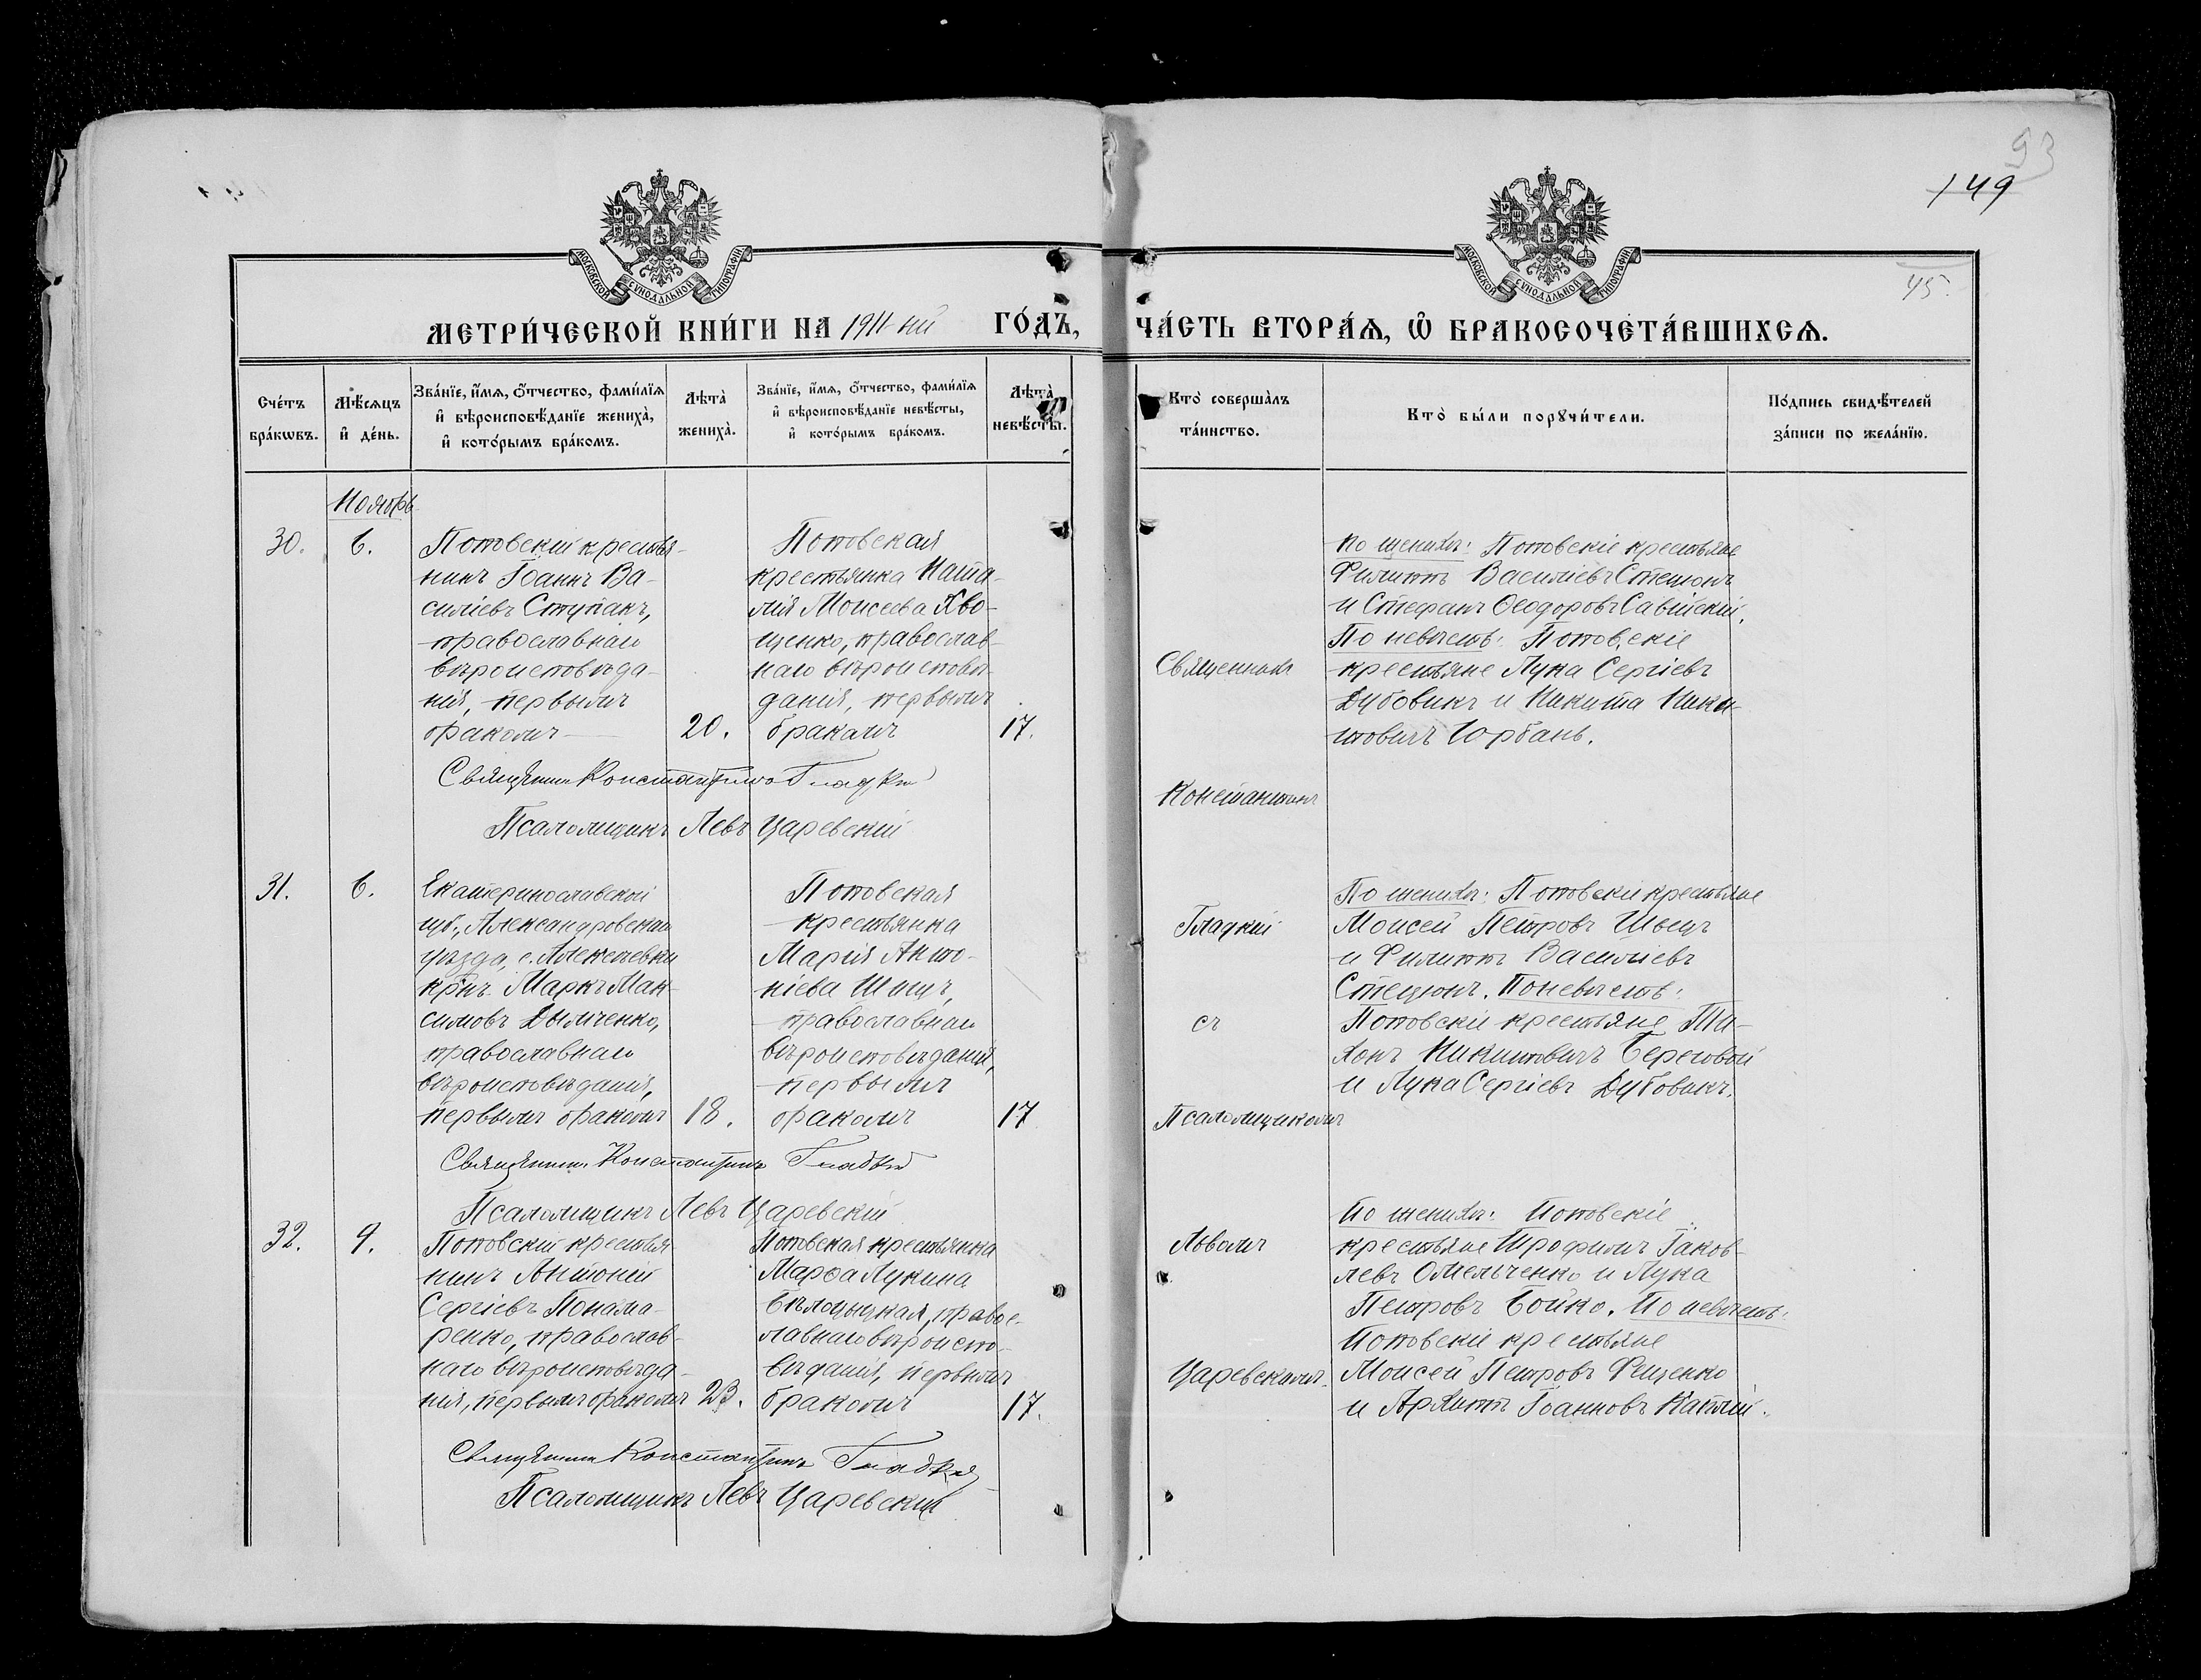 93
149
45.
МОСКОВСКОЙ СѴНОДАЛЬНОЙ ТИПОГРАФІИ
МОСКОВСКОЙ СѴНОДАЛЬНОЙ ТИПОГРАФІИ
МЕТРИ́ЧЕСКОЙ КНИ́ГИ НА 1911-ый ГО́ДЪ, ЧА́СТЬ ВТОРА́Ѧ, Ѽ БРАКОСОЧЕТА́ВШИХСѦ.
Сче́тъ бра́кѡвъ.
Мѣ́сѧцъ и҆ де́нь.
Зва́нїе, и҆́мѧ, ѻ҆́тчество, фами́лїѧ и҆ вѣроисповѣ́данїе жениха̀, и҆ кото́рымъ бра́комъ.
Лѣта̀ жениха̀.
Зва́нїе, и҆́мѧ, ѻ҆́тчество, фами́лїѧ и҆ вѣроисповѣ́данїе невѣ́сты, и҆ кото́рымъ бра́комъ.
Лѣта̀ невѣ́сты.
Кто̀ соверша̀лъ та́инство.
Кто̀ бы́ли порꙋчи́тели.
По́дпись свидѣ́телей за́писи по жела́нїю.
Ноябрь
30.
6.
Поповскій крестья-
нинъ Іоаннъ Ва-
силіевъ Ступакъ,
православнаго
вѣроисповѣда-
нія, первымъ
бракомъ
20.
Поповская
крестьянка Ната-
лія Моисеева Хво-
щенко, православ-
наго вѣроисповѣ-
данія, первымъ
бракомъ
17.
По женихѣ: Поповскіе крестьяне
Филиппъ Василіевъ Стецюнъ
и Стефанъ Ѳеодоровъ Савійскій.
По невѣстѣ: Поповскіе
крестьяне Лука Сергіевъ
Дубовикъ и Никита Ники-
товичъ Юрбанъ.
Священникъ Константинъ Гладкій
Псаломщикъ Левъ Царевскій
31.
6.
Екатеринославской
губ., Александровскаго
уѣзда, с. Алексѣевки
крнъ Маркъ Мак-
симовъ Дымченко,
православнаго
вѣроисповѣданія,
первымъ бракомъ
18.
Поповская
крестьянка
Марія Анто-
ніева Швецъ,
православнаго
вѣроисповѣданія,
первымъ
бракомъ
17
По женихѣ: Поповскіе крестьяне
Моисей Петровъ Швецъ
и Филиппъ Василіевъ
Стецюнъ. По невѣстѣ:
Поповскіе крестьяне Ти-
хонъ Никитовичъ Береговой
и Лука Сергіевъ Дубовикъ.
Священникъ Константинъ Гладкій
Псаломщикъ Левъ Царевскій
32.
9.
Поповскій крестья-
нинъ Антоній
Сергіевъ Понама-
ренко, православ-
наго вѣроисповѣда-
нія, первымъ бракомъ
23.
Поповская крестьянка
Марѳа Лукина
Бѣлоцыцкая, правос-
лавнаго вѣроиспо-
вѣданія, первымъ
бракомъ
17.
По женихѣ: Поповскіе
крестьяне Трофимъ Іаков-
левъ Омельченко и Лука
Петровъ Бойко. По невѣстѣ:
Поповскіе крестьяне
Моисей Петровъ Фещенко
и Архиппъ Іоанновъ Каплій.
Священникъ Константинъ Гладкій
Псаломщикъ Левъ Царевскій
Священникъ
Константинъ
Гладкій
съ
Псаломщикомъ
Львомъ
Царевскимъ.